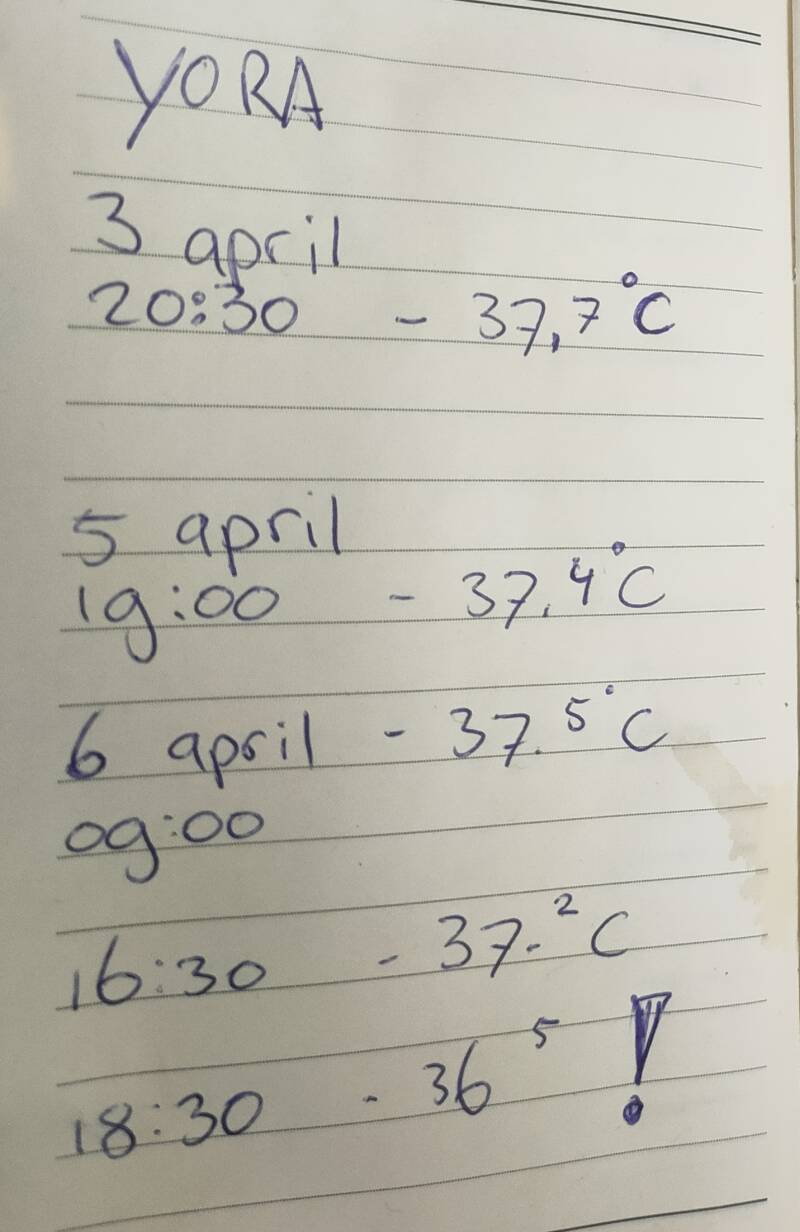 YORA
3 april
20:30 - 37,7°C
5 april
19:00 - 37.4°C
6 april - 37.5°C
09:00
16:30 - 37.2 C
18:30 - 36 5 !